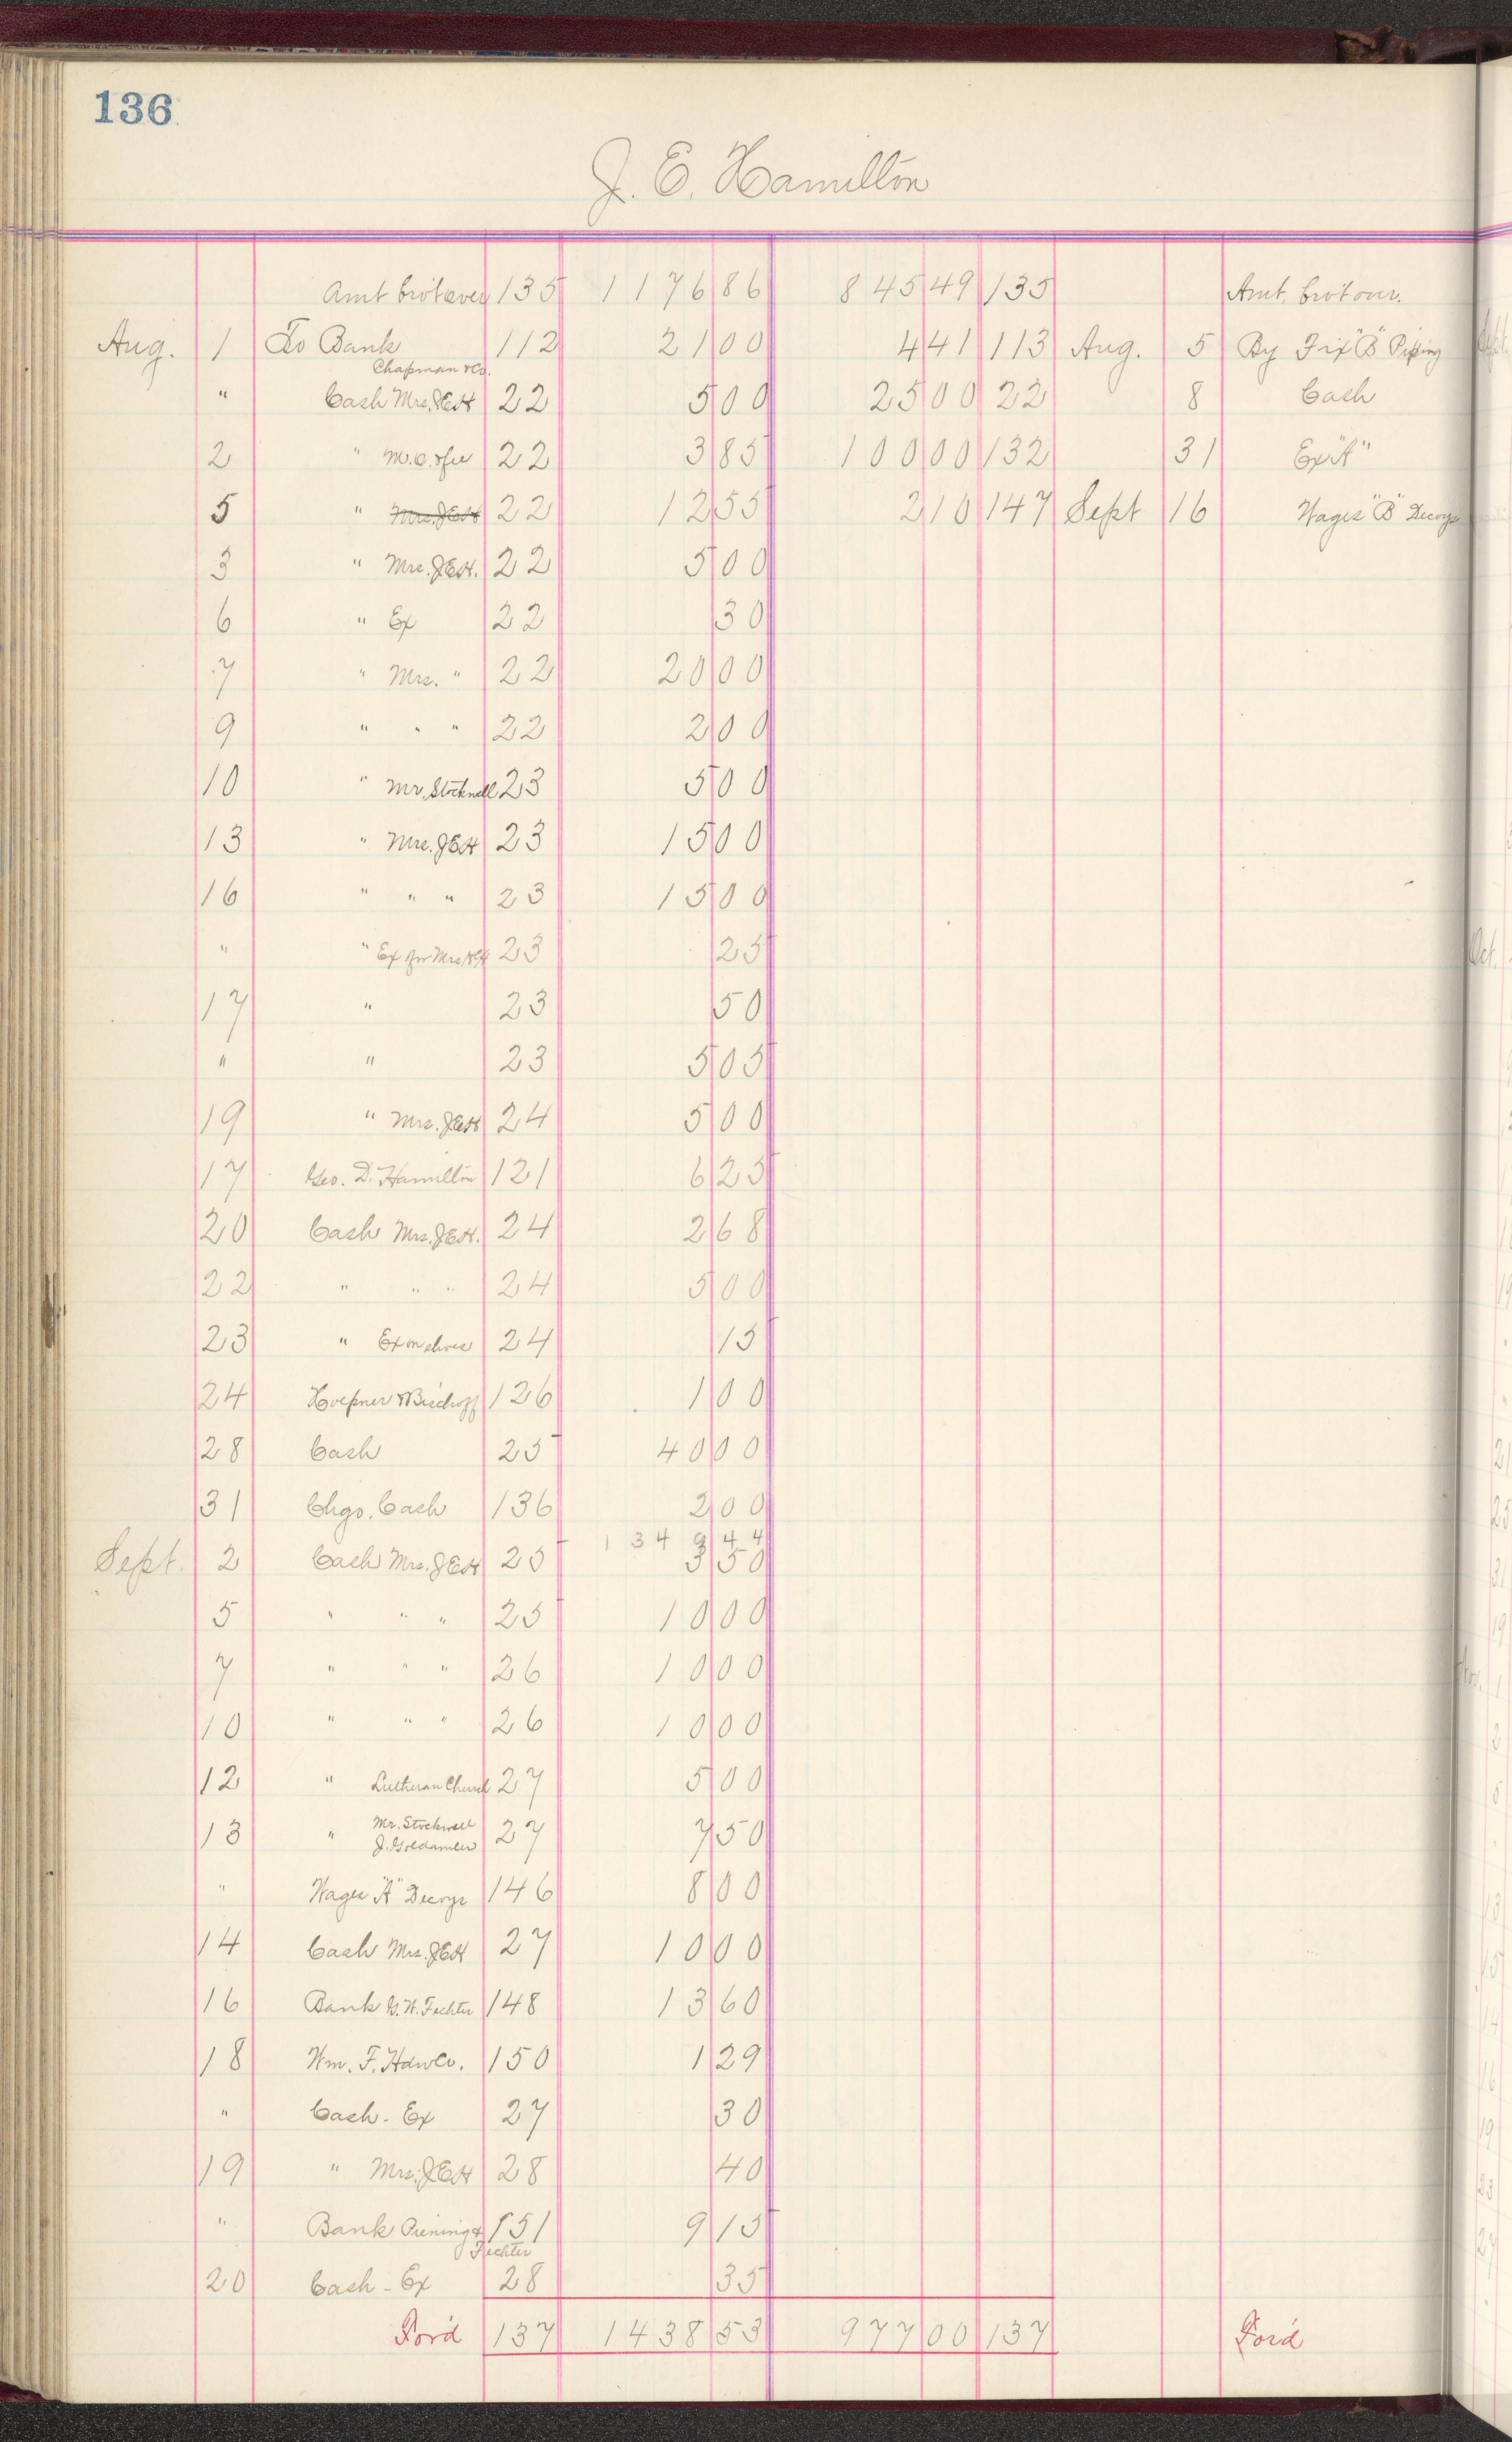 136
J. E. Hamilton
Amt brot over 135 1176 86 845 49 135 Amt. brot over.
Aug. 1 To Bank 112 21 00 4 41 113 Aug. 5 By Fix "B" Piping
Chapman & Co.
" Cash Mrs. JEH 22 5 00 25 00 22 8 Cash
2 " M.O. & fee 22 3 85 100 00 132 31 Ex "A"
5 " Mrs. JEH 22 12 55 2 10 147 Sept 16 Wages "B" Decoys
3 " Mrs. JEH. 22 5 00
6 " Ex 22 30
7 " Mrs. " 22 20 00
9 " " " 22 2 00
10 " Mr. Stocknell 23 5 00
13 " Mrs. JEH 23 15 00
16 " " " 23 15 00
" " Ex for Mrs JEH 23 25
17 " 23 50
" " 23 5 05
19 " Mrs. JEH 24 5 00
17 Geo. D. Hamilton 121 6 25
20 Cash Mrs. JEH. 24 2 68
22 " " " 24 5 00
23 " Ex on shoes 24 15
24 Hoepner & Bischoff 126 1 00
28 Cash 25 40 00
31 Chgo. Cash 136 2 00
1 34 9 4 4
Sept. 2 Cash Mrs. JEH 25 3 50
5 " " " 25 10 00
7 " " " 26 10 00
10 " " " 26 10 00
12 " Lutheran Church 27 5 00
13 " Mr. Stockwell 27 7 50
J. Goldamler
" Wages "A" Decoys 146 8 00
14 Cash Mrs. JEH 27 10 00
16 Bank G.W. Fechter 148 13 60
18 Wm. F. Hdw Co. 150 1 29
" Cash - Ex 27 30
19 " Mrs. JEH 28 40
" Bank 151 9 15
Fechter
20 Cash - Ex 28 35
For'd 137 1438 53 977 00 137 For'd